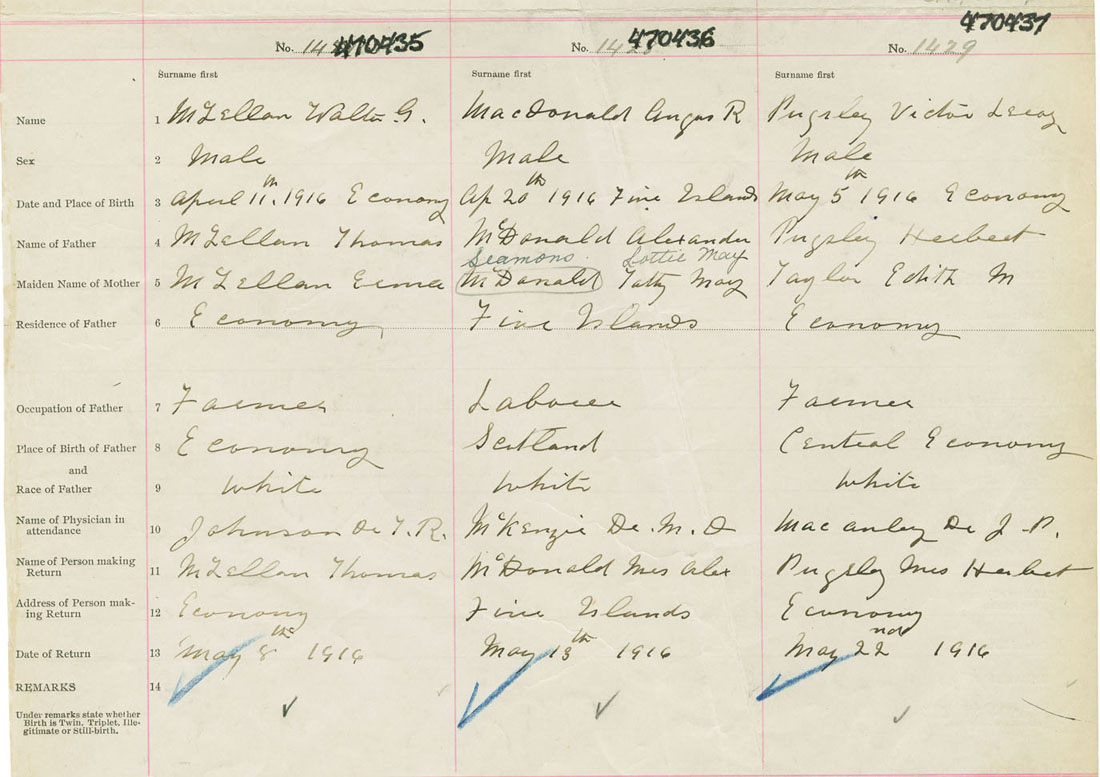 No. 470435 No. 470436 No. 1429 470437
Surname first Surname first Surname first
Name 1 McLellan Walter G. MacDonald Angus R Pugsley Victor Leroy
Sex 2 Male Male Male
Date and Place of Birth 3 April 11th. 1916 Economy Ap 20th 1916 Five Islands May 5th 1916 Economy
Name of Father 4 McLellan Thomas McDonald Alexander Pugsley Herbert
Seamons. Lottie May
Maiden Name of Mother 5 McLellan McDonald May Taylor Edith M
Residence of Father 6 Economy Five Islands Economy
Occupation of Father 7 Farmer Laborer Farmer
Place of Birth of Father 8 Economy Scotland Central Economy
and
Race of Father 9 White White White
Name of Physician in
attendance 10 Johnson Dr T. R. McKenzie Dr. M. D Macaulay Dr J. P.
Name of Person making
Return 11 McLellan Thomas McDonald Mrs Alex Pugsley Mrs Herbert
Address of Person mak-
ing Return 12 Economy Five Islands Economy
Date of Return 13 May 8th 1916 May 13th 1916 May 22nd 1916
REMARKS 14
Under remarks state whether
Birth is Twin, Triplet, Ille-
gitimate or Still-birth.